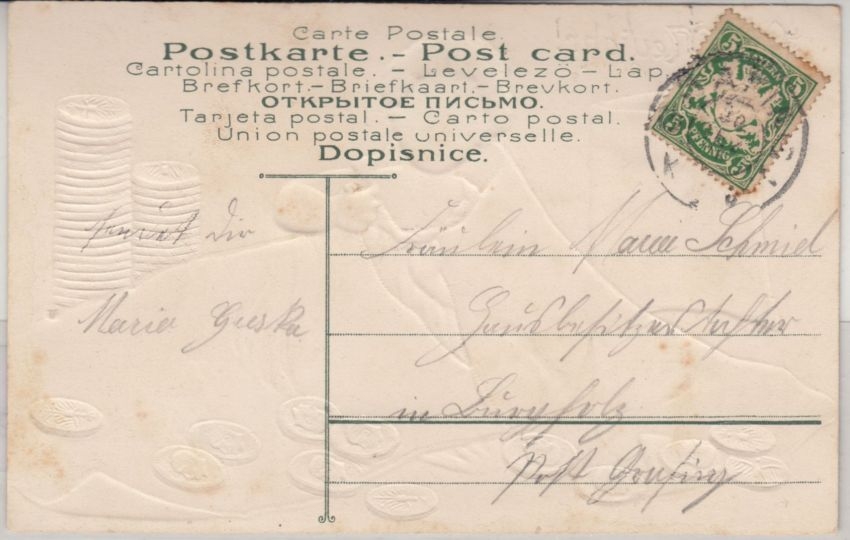 Carte Postale.
Postkarte.– Post card.
Cartolina postale. – Levelező – Lap.
Brefkort.– Briefkaart.– Brevkort.
ОТКРЫТОЕ ПИСЬМО.
Tarjeta postal. – Carto postal.
Union postale universelle.
Dopisnice.
5 5
BAYERN
5 5
PFENNIG
dir
Maria
Fräulein Marie Schmid
Hausbesitzerstochter
in
Post Grafing